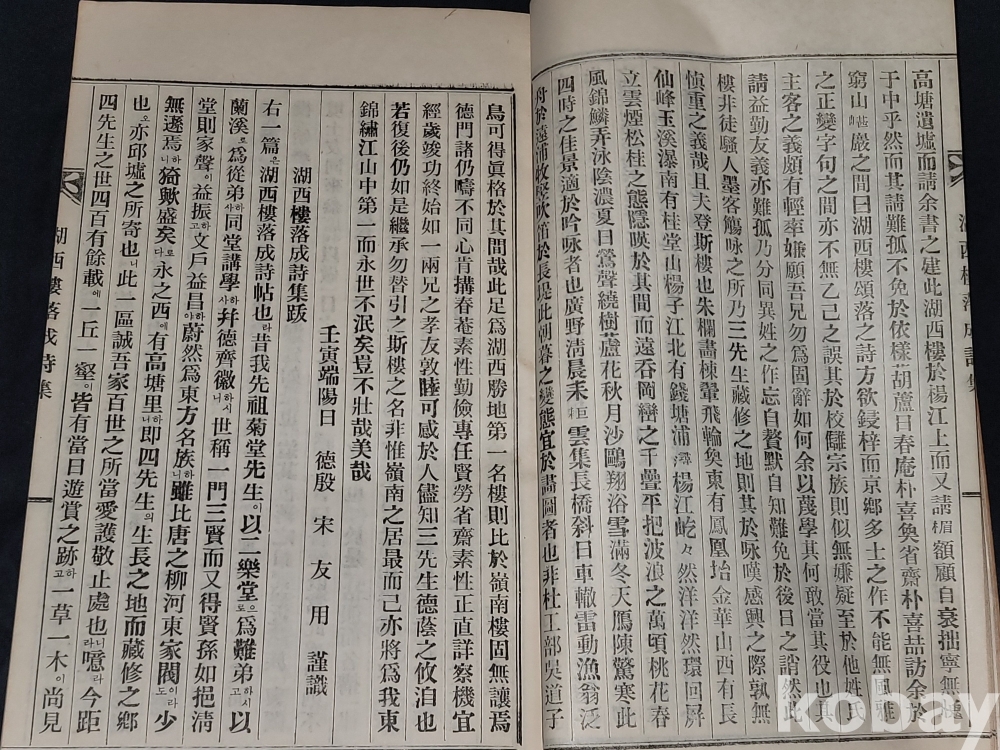 高塘遺墟而請余書之建此湖西樓於楊江上而又請楣額顧自衰拙寧無
于中乎然而其請難孤不免於依樣葫蘆日春庵朴喜奐省齋朴喜喆訪余於
窮山嵁巖之間曰湖西樓頌落之詩方欲鋟梓而京鄉多士之作不能無風雅
之正變字句之間亦不無乙己之誤其於校讎宗族則似無嫌疑至於他姓氏
主客之義頗有輕率嫌願吾兄勿爲固辭如何余以蔑學其何敢當其役也其
請益勤友義亦難孤乃分同異姓之作忘自贅默自知難免於後日之誚然此
樓非徒騷人墨客觴咏之所乃三先生藏修之地則其於咏嘆感興之際孰無
愼重之義哉且夫登斯樓也朱欄畵棟暈飛輪奐東有鳳凰坮金華山西有長
仙峰玉溪瀑南有桂堂山楊子江北有錢塘浦潯楊江屹々然洋洋然環回屛
立雲煙松桂之態隱暎於其間而遠呑岡巒之千疊平把波浪之萬頃桃花春
風錦鱗弄泳陰濃夏日鶯聲繞樹蘆花秋月沙鷗翔浴雪滿冬天鴈陳驚寒此
四時之佳景適於吟咏者也廣野淸晨耒耟雲集長橋斜日車轍雷動漁翁泛
舟於遠浦牧竪吹笛於長堤此朝暮之變態宜於畵圖者也非杜工部吳道子
湖西樓落成詩集
烏可得眞格於其間哉此足爲湖西勝地第一名樓則比於嶺南樓固無讓焉
德門諸仍疇不同心肯搆春菴素性勤儉專任賢勞省齋素性正直詳察機宜
經歲竣功終始如一兩兄之孝友敦睦可感於人儘知三先生德蔭之攸洎也
若復後仍如是繼承勿替引之斯樓之名非惟嶺南之居最而已亦將爲我東
錦繡江山中第一而永世不泯矣豈不壯哉美哉
壬寅端陽日 德殷 宋友用 謹識
湖西樓落成詩集跋
右一篇은湖西樓落成詩帖也라昔我先祖菊堂先生이以二樂堂으로爲難弟하시고以
蘭溪로爲從弟하사同堂講學하사幷德齊徽하시니世稱一門三賢而又得賢孫如挹淸
堂則家聲이益振하고文戶益昌하야蔚然爲東方名族하니雖比唐之柳河東家閥이라도少
無遜焉하니猗歟盛矣로다永之西에有高塘里하니卽四先生의生長之地而藏修之鄉
也오亦邱墟之所寄也니此一區誠吾家百世之所當愛護敬止處也라噫라今距
四先生之世四百有餘載에一丘一壑이皆有當日遊賞之跡하고一草一木이尙見
湖西樓落成詩集
kobay